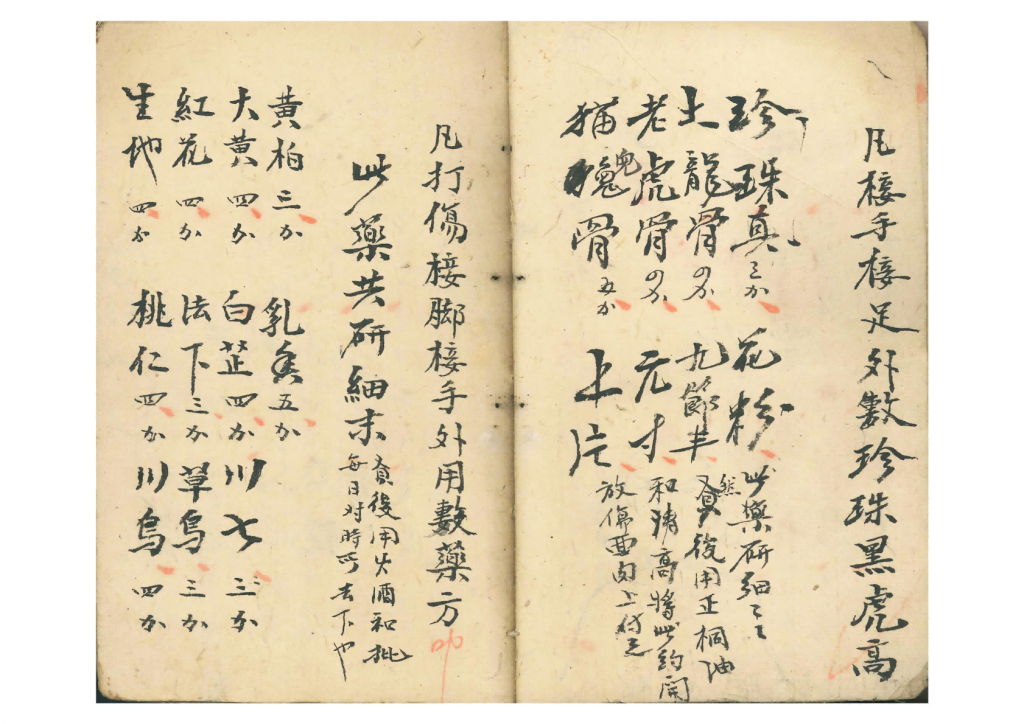 凡接手接足外數珍珠黑虎高
珍珠真三分 花粉
土龍骨四分 九節丰
老虎骨四分 元寸
猫貌骨五分 上片
此藥研細々
然後用正桐油
和猪高將此約開
放傷面肉上
凡打傷接脚接手外用數藥方
此藥共研細末
然後用火酒和批
每日对時可去下也
黃柏三分 乳香五分
大黃四分 白芷四分 川七三分
紅花四分 法下三分 草烏三分
生地四分 桃仁四分 川烏四分